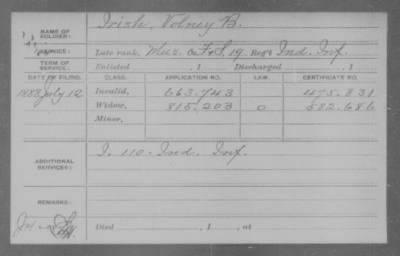 NAME OF SOLDIER: Irish, Volney B.
SERVICE: Late rank, Mus. & F&S. 19 Reg't Ind. Inf.
TERM OF SERVICE: Enlisted , 1 Discharged , 1
DATE OF FILING. CLASS. APPLICATION NO. LAW. CERTIFICATE NO.
1888 July 12 Invalid, 663.743 475.831
Widow, 815.203 O 582.686
Minor,
ADDITIONAL SERVICES: I. 110 - Ind. Inf.
REMARKS:
Died , 1 , at